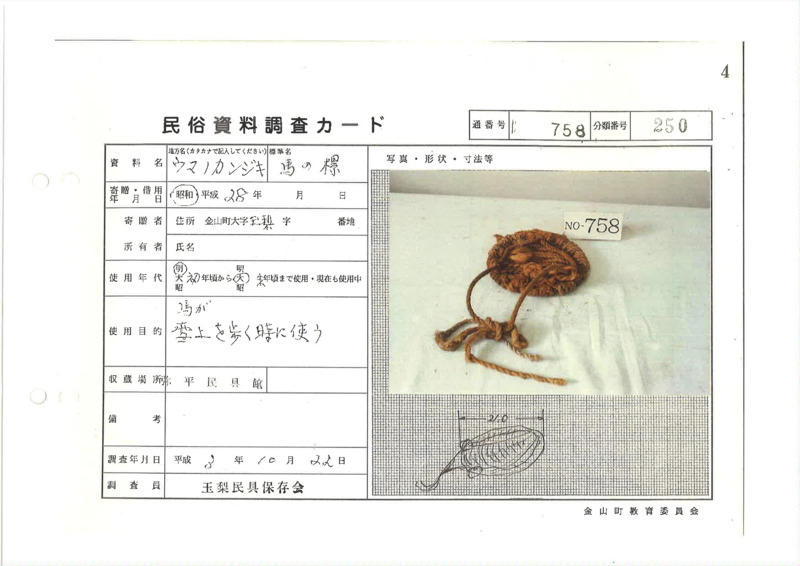 4
民俗資料調査カード
通番号 758 分類番号 250
資料名 地方名(カタカナで記入してください) ウマノカンジキ 標準名 馬の樏
写真・形状・寸法等
寄贈・借用年月日 昭和 平成 28年 月 日
寄贈者 住所 金山町大字玉梨字 番地
所有者 氏名
使用年代 明 大 昭 初年頃から 明 大 昭 末年頃まで使用・現在も使用中
使用目的 馬が
雪上を歩く時に使う
収蔵場所 平民具館
備考
調査年月日 平成 3年 10月 22日
調査員 玉梨民具保存会
NO-758
21.0
金山町教育委員会